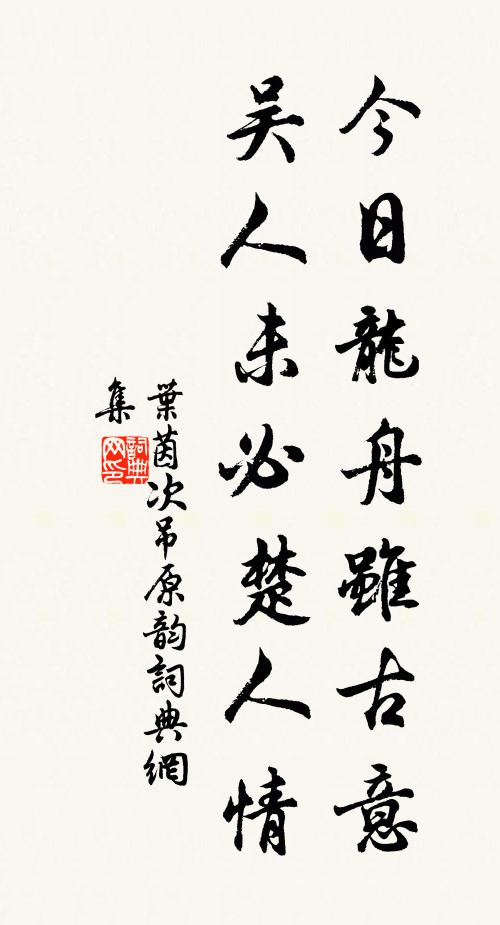 今日龍舟雖古意
吴人未必楚人情
葉茵次吊原韵詞典網
集
詞典网印